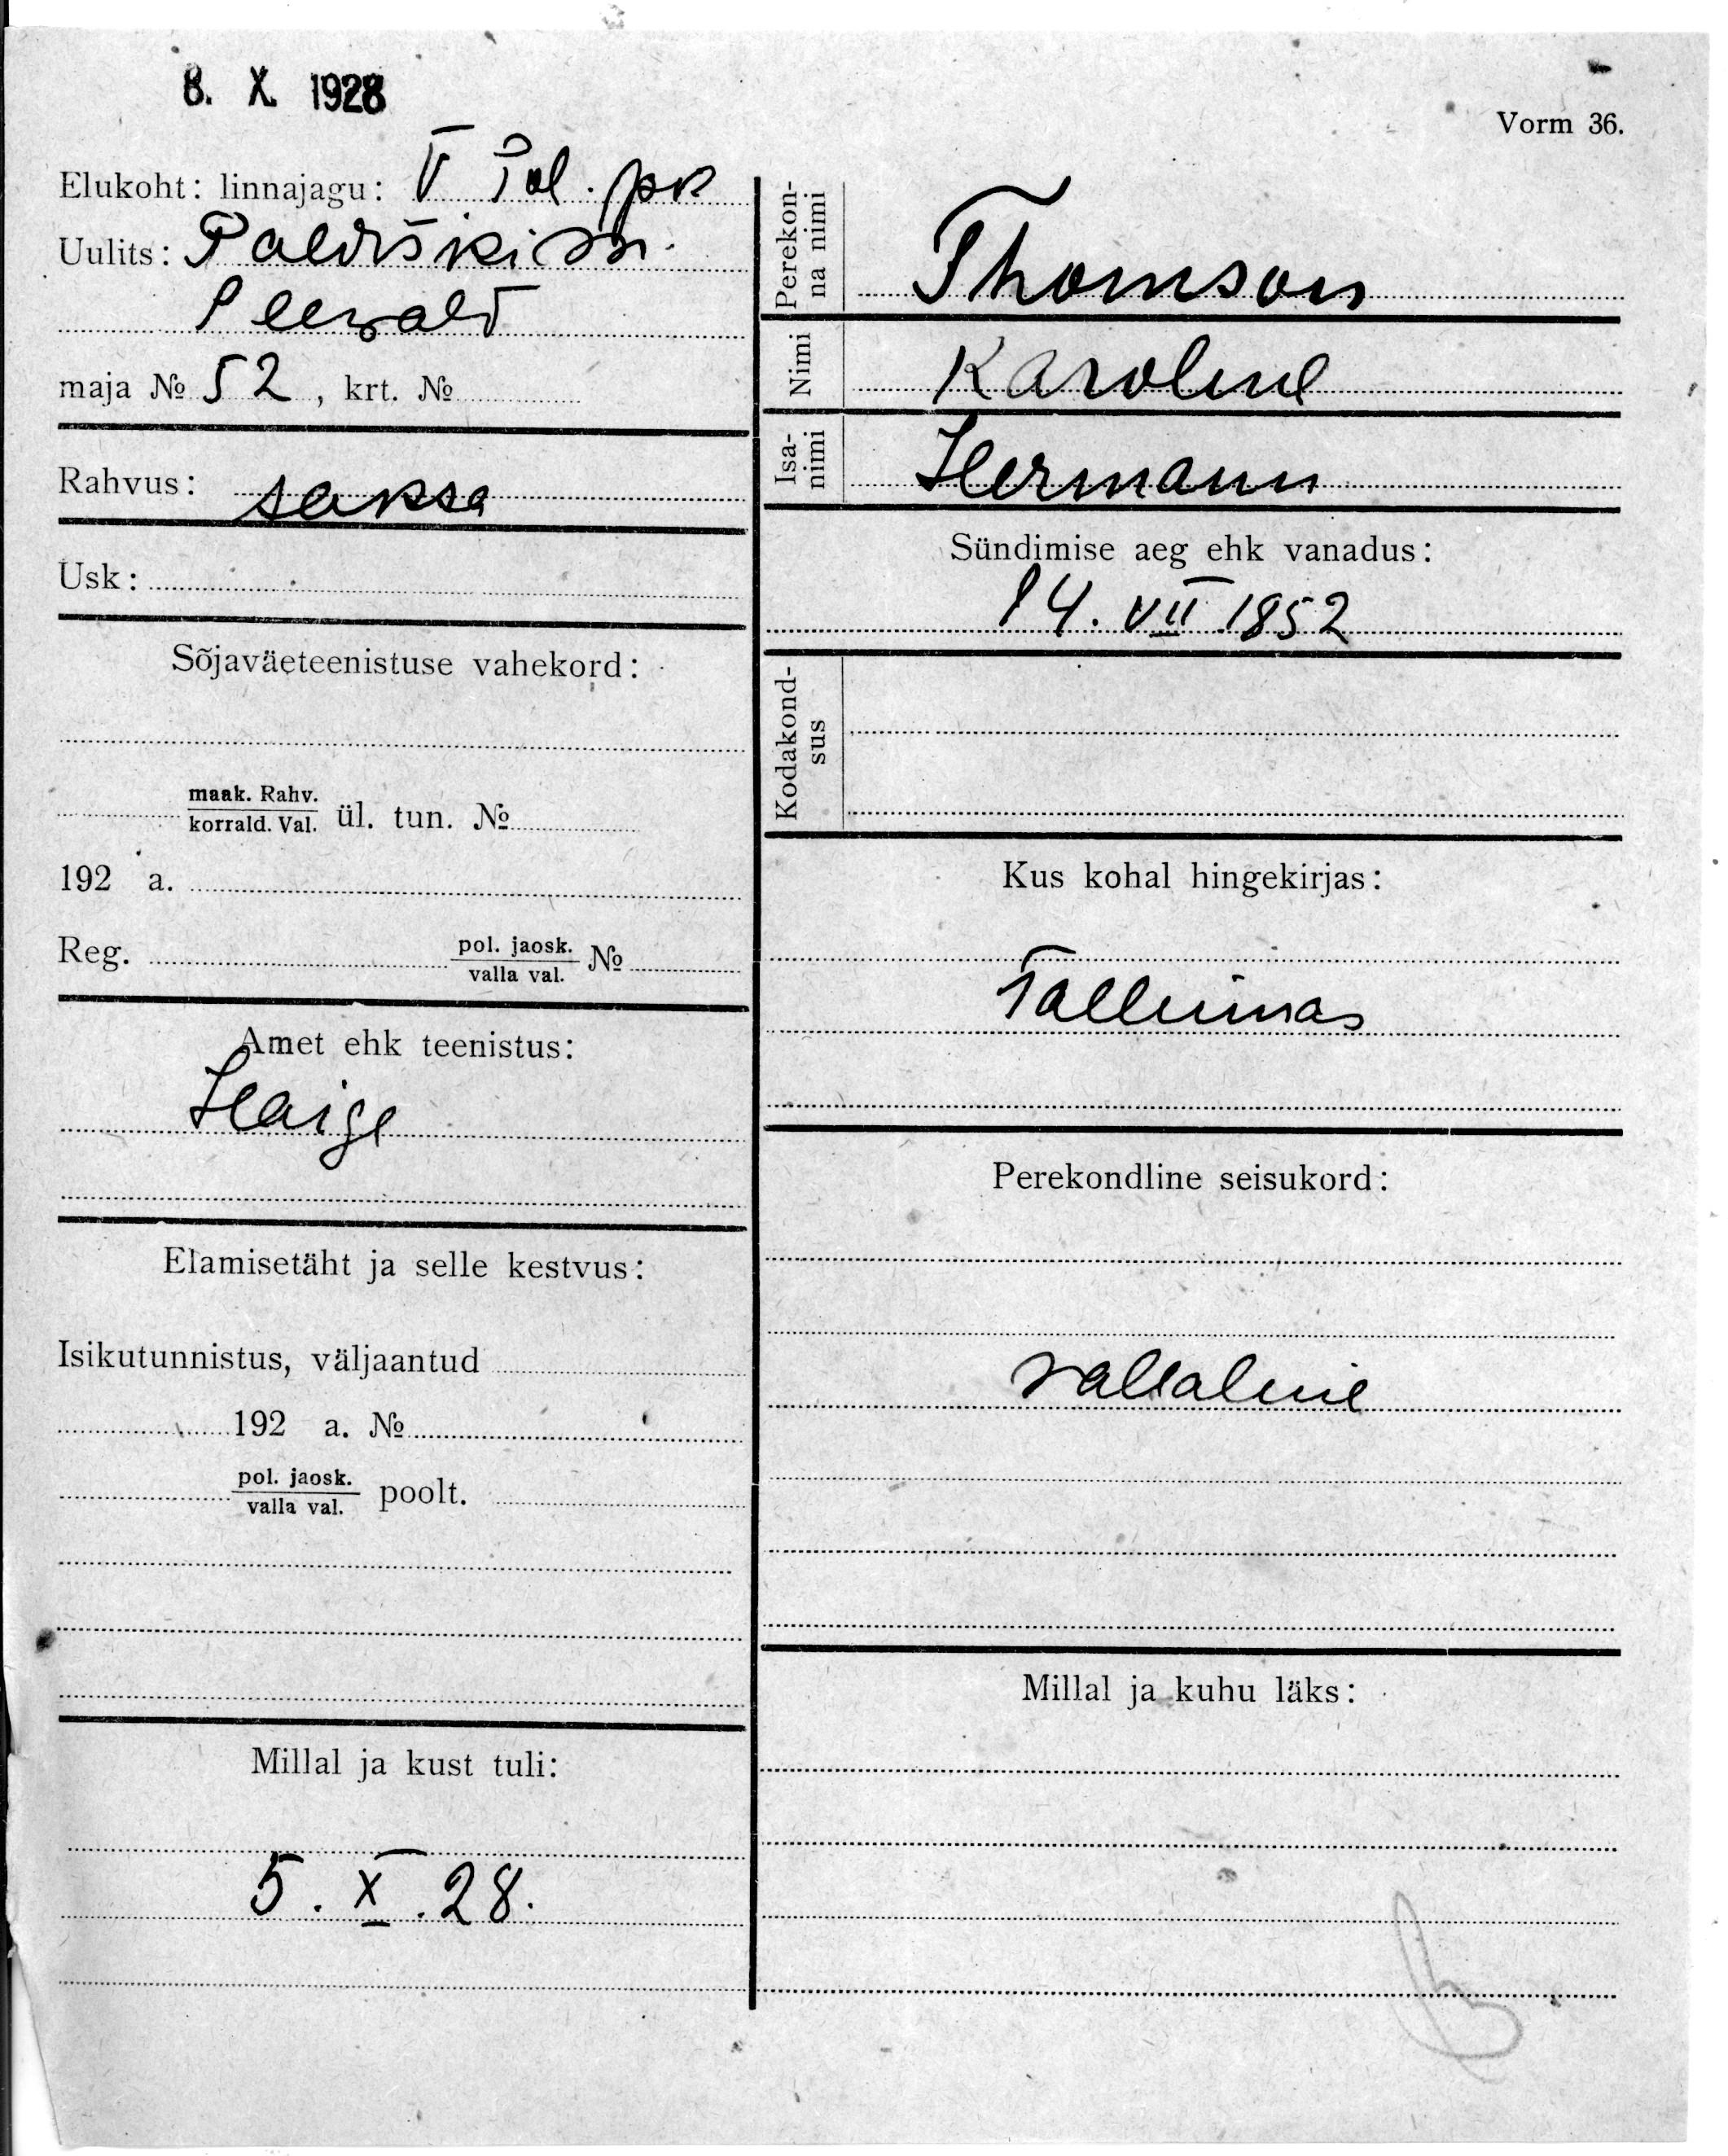 8. X. 1928
Vorm 36.
Elukoht: linnajagu: V Pol. jsk
Uulits: Paldiski mn.
Seewald
maja № 52, krt. №
Rahvus: saksa
Usk:
Sõjaväeteenistuse vahekord:
maak. Rahv.
korrald. Val. ül. tun. №
192 a.
Reg. pol. jaosk.
valla val. №
Amet ehk teenistus:
Haige
Elamisetäht ja selle kestvus:
Isikutunnistus, väljaantud
192 a. №
pol. jaosk.
valla val. poolt.
Millal ja kust tuli:
5. X. 28.
Perekon-
na nimi
Thomson
Nimi
Karoline
Isa-
nimi
Hermann
Sündimise aeg ehk vanadus:
14. VII 1852
Kodakond-
sus
Kus kohal hingekirjas:
Tallinnas
Perekondline seisukord:
vallaline
Millal ja kuhu läks: